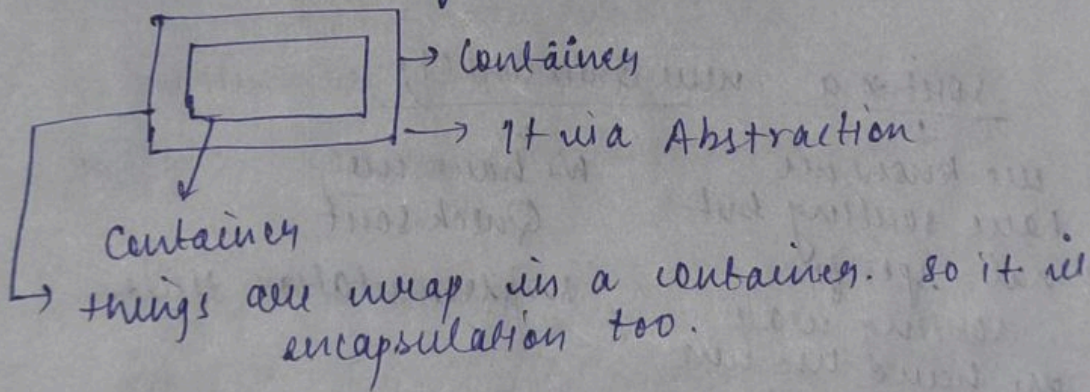 Container
It is a Abstraction.
Container
things are wrap in a container. So it is
encapsulation too.